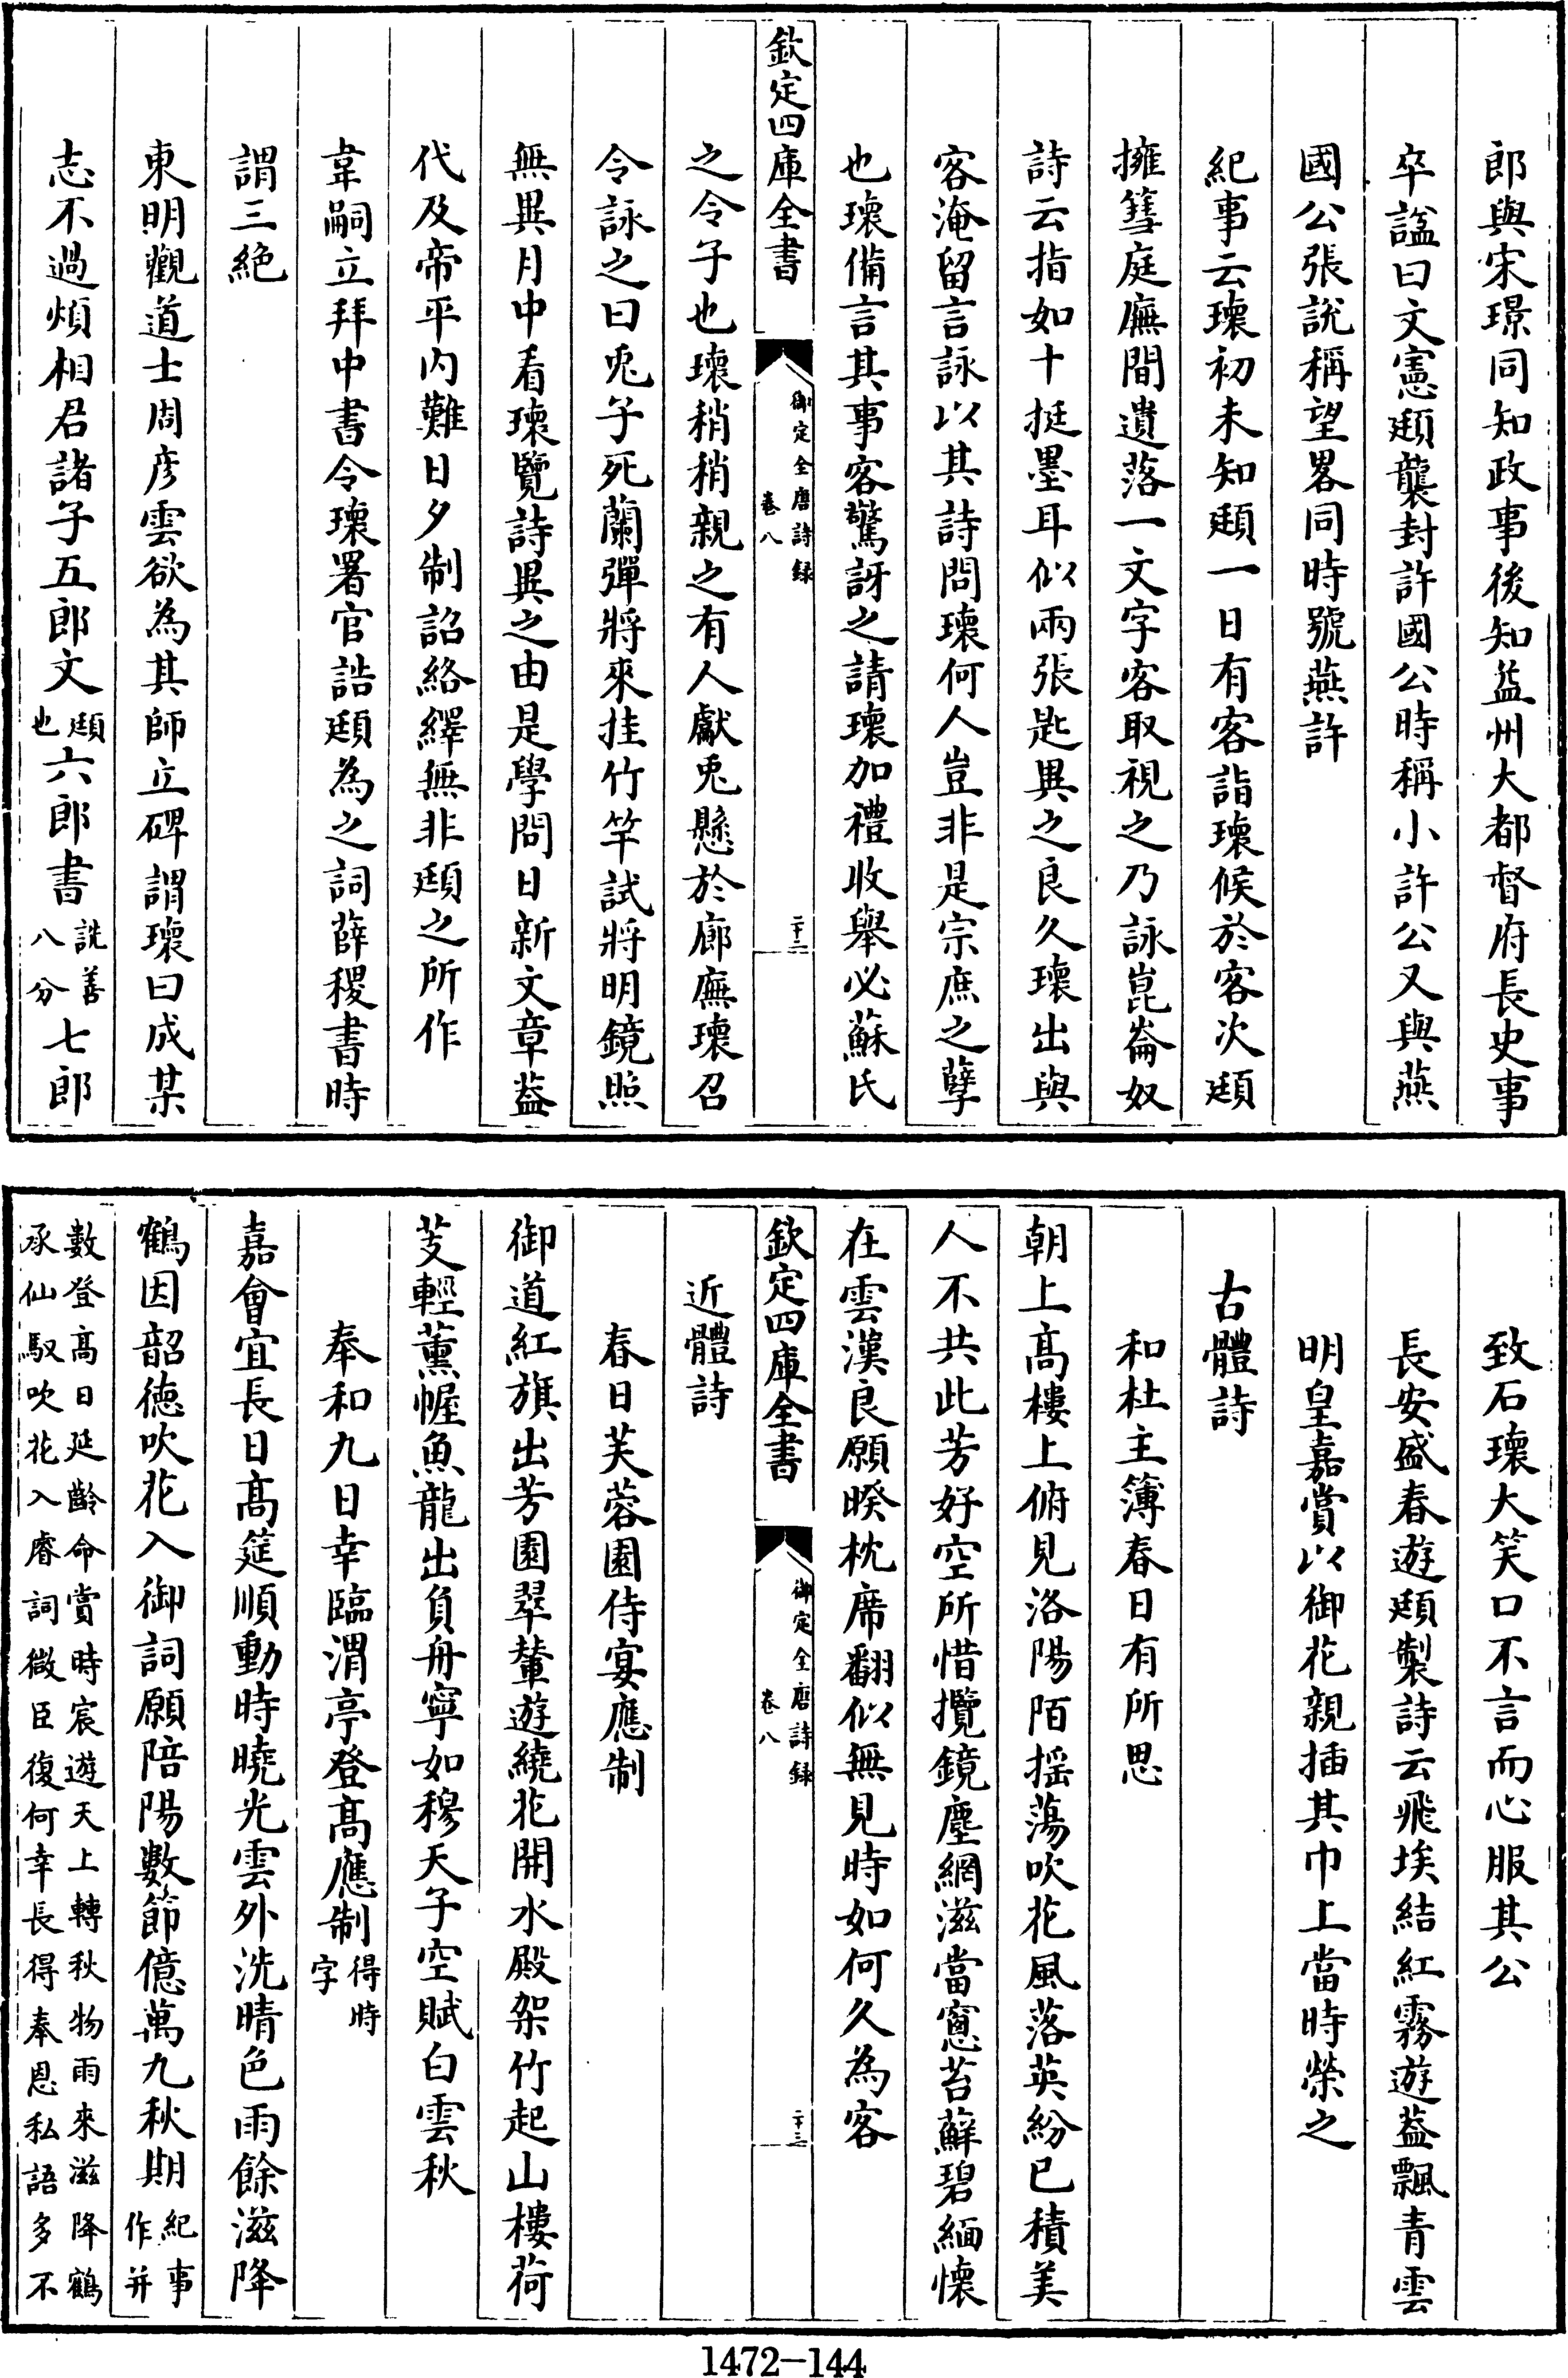 郎與宋璟同知政事後知益州大都督府長史事
卒諡曰文憲頲襲封許國公時稱小許公又與燕
國公張說稱望畧同時號燕許
紀事云瓌初未知頲一日有客詣瓌候於客次頲
擁篲庭廡間遺落一文字客取視之乃詠崑崙奴
詩云指如十挺墨耳似兩張匙異之良久瓌出與
客淹留言詠以其詩問瓌何人豈非是宗庶之孽
也瓌備言其事客驚訝之請瓌加禮收舉必蘇氏
欽定四庫全書
御定全唐詩録
卷八
二十二
之令子也瓌稍稍親之有人獻兎懸於廊廡瓌召
令詠之曰兎子死蘭彈將來挂竹竿試將明鏡照
無異月中看瓌覽詩異之由是學問日新文章葢
代及帝平内難日夕制詔絡繹無非頲之所作
韋嗣立拜中書令瓌署官誥頲為之詞薛稷書時
謂三絶
東明觀道士周彦雲欲為其師立碑謂瓌曰成某
志不過煩相君諸子五郎文頲也六郎書詵善八分七郎
致石瓌大笑口不言而心服其公
長安盛春遊頲製詩云飛埃結紅霧遊葢飄青雲
明皇嘉賞以御花親插其巾上當時榮之
古體詩
和杜主簿春日有所思
朝上髙樓上俯見洛陽陌揺蕩吹花風落英紛已積美
人不共此芳好空所惜攬鏡塵網滋當窻苔蘚碧緬懷
在雲漢良願暌枕席翻似無見時如何久為客
欽定四庫全書
御定全唐詩録
卷八
二十三
近體詩
春日芙蓉園侍宴應制
御道紅旗出芳園翠輦遊繞花開水殿架竹起山樓荷
芰輕薰幄魚龍出負舟寧如穆天子空賦白雲秋
奉和九日幸臨渭亭登髙應制得時字
嘉會宜長日髙筵順動時曉光雲外洗晴色雨餘滋降
鶴因韶徳吹花入御詞願陪陽數節億萬九秋期紀事作并
數登髙日延齡命賞時宸遊天上轉秋物雨來滋降鶴
承仙馭吹花入睿詞微臣復何幸長得奉恩私語多不
1472-144